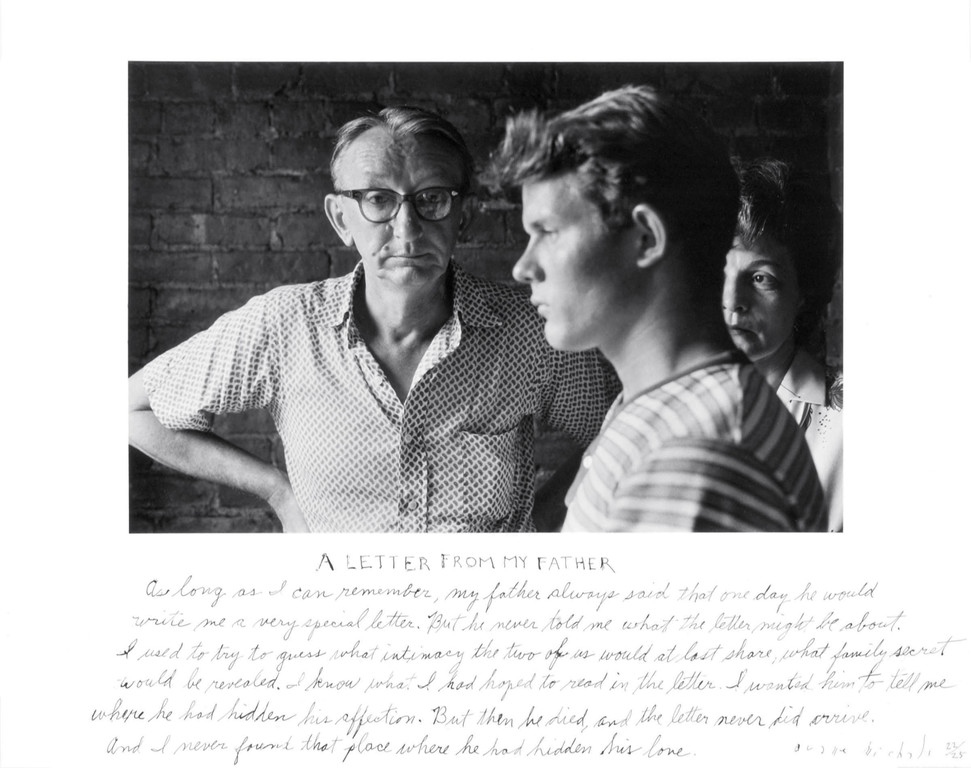 A LETTER FROM MY FATHER
As long as I can remember, my father always said that one day he would
write me a very special letter. But he never told me what the letter might be about.
I used to try to guess what intimacy the two of us would at last share, what family secret
would be revealed. I know what I had hoped to read in the letter. I wanted him to tell me
where he had hidden his affection. But then he died, and the letter never did arrive.
And I never found that place where he had hidden his love.